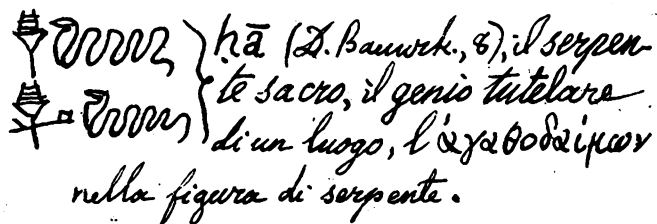 ḥā (D. Bauurk., 8), il serpen-
te sacro, il genio tutelare
di un luogo, l'ἀγαθοδαίμων
nella figura di serpente.